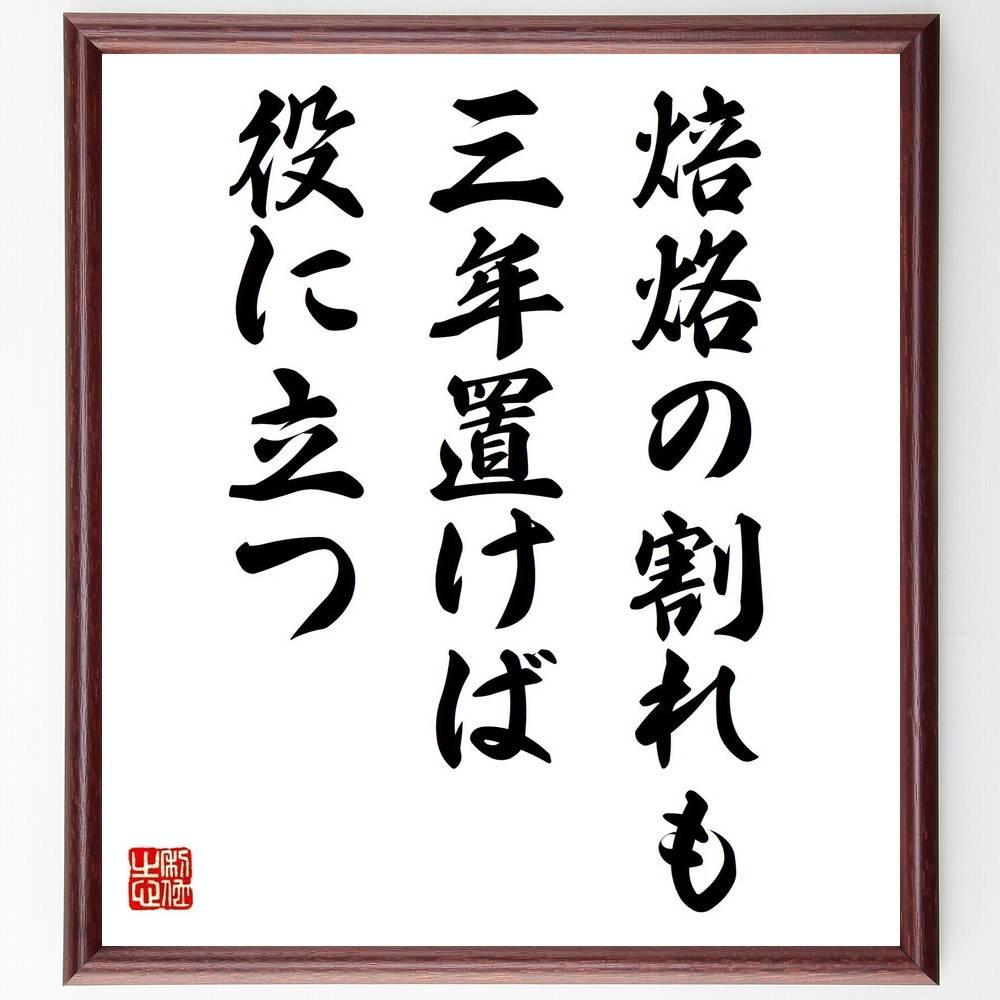 焙烙の割れも
三年置けば
役に立つ